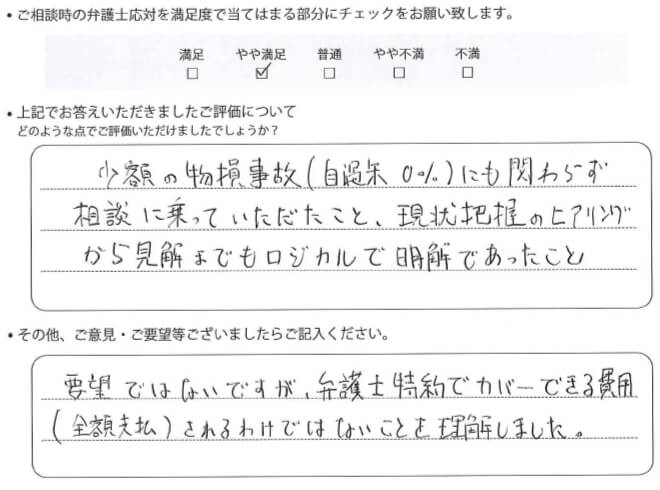 ・ご相談時の弁護士応対を満足度で当てはまる部分にチェックをお願い致します。
満足 やや満足 普通 やや不満 不満
□ ☑ □ □ □
・上記でお答えいただきましたご評価について
どのような点でご評価いただけましたでしょうか？
少額の物損事故(自過失 0%)にも関わらず
相談に乗っていただたこと、現状把握のヒアリング
から見解までもロジカルで明解であったこと
・その他、ご意見・ご要望等ございましたらご記入ください。
要望ではないですが、弁護士特約でカバーできる費用
(全額支払)されるわけではないことを理解しました。